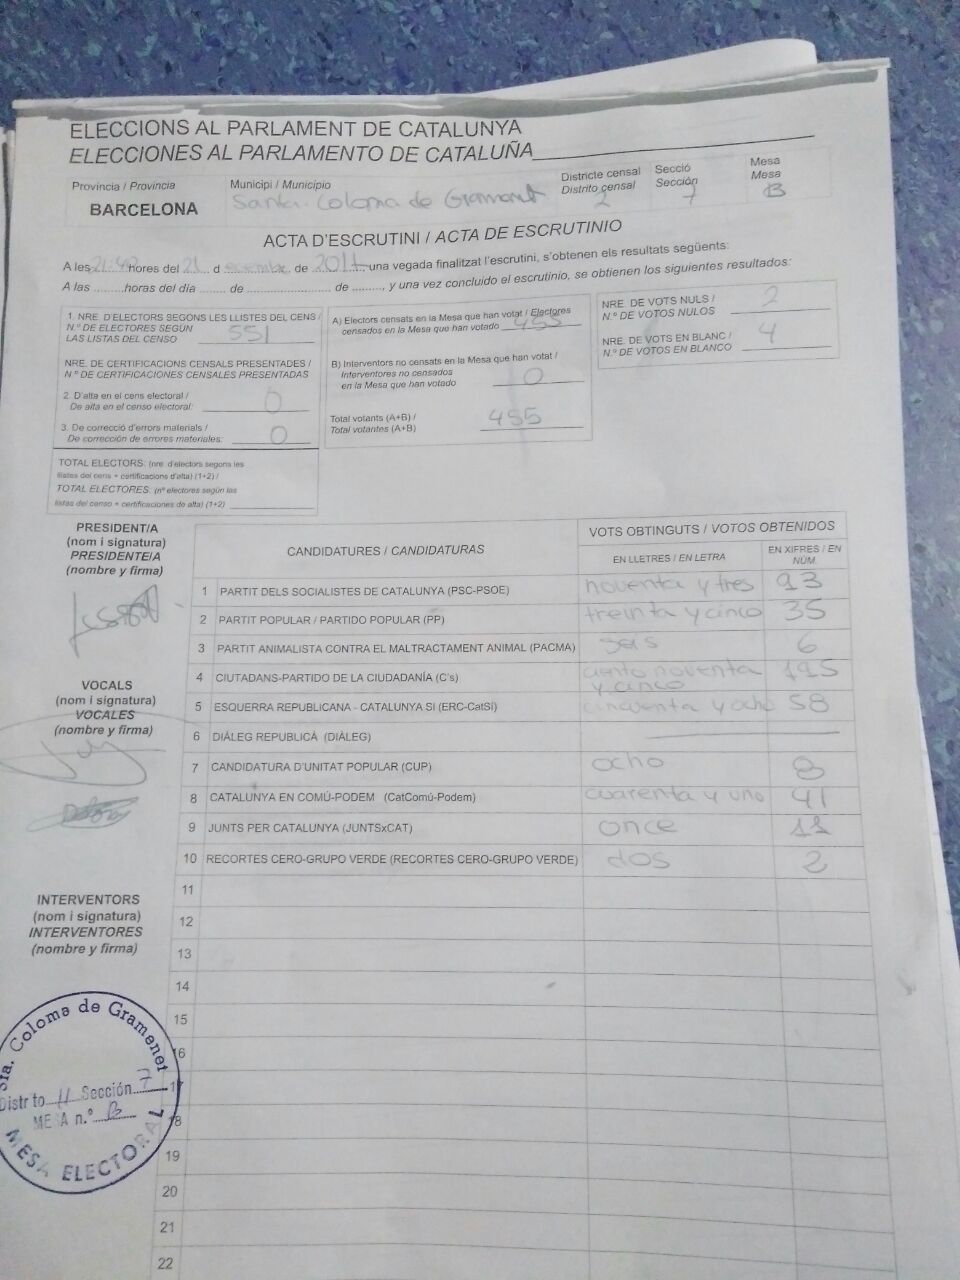 ELECCIONS AL PARLAMENT DE CATALUNYA
ELECCIONES AL PARLAMENTO DE CATALUÑA
Província / Provincia
BARCELONA
Municipi / Municipio
Santa Coloma de Gramenet
Districte censal
Distrito censal
2
Secció
Sección
7
Mesa
Mesa
B
ACTA D'ESCRUTINI / ACTA DE ESCRUTINIO
A les 21:40 hores del 21 d de 2017 una vegada finalitzat l'escrutini, s'obtenen els resultats següents:
A las ......... horas del día ....... de ....................... de ........., y una vez concluido el escrutinio, se obtienen los siguientes resultados:
1. NRE. D'ELECTORS SEGONS LES LLISTES DEL CENS /
N.º DE ELECTORES SEGÚN
LAS LISTAS DEL CENSO 551
NRE. DE CERTIFICACIONS CENSALS PRESENTADES /
N.º DE CERTIFICACIONES CENSALES PRESENTADAS
2. D'alta en el cens electoral /
De alta en el censo electoral: 0
3. De correcció d'errors materials /
De corrección de errores materiales: 0
TOTAL ELECTORS: (nre. d'electors segons les
llistes del cens + certificacions d'alta) (1+2) /
TOTAL ELECTORES: (nº electores según las
listas del censo + certificaciones de alta) (1+2)
A) Electors censats en la Mesa que han votat / Electores
censados en la Mesa que han votado 455
B) Interventors no censats en la Mesa que han votat /
Interventores no censados
en la Mesa que han votado 0
Total votants (A+B) /
Total votantes (A+B) 455
NRE. DE VOTS NULS /
N.º DE VOTOS NULOS 2
NRE. DE VOTS EN BLANC /
N.º DE VOTOS EN BLANCO 4
PRESIDENT/A
(nom i signatura)
PRESIDENTE/A
(nombre y firma)
VOCALS
(nom i signatura)
VOCALES
(nombre y firma)
INTERVENTORS
(nom i signatura)
INTERVENTORES
(nombre y firma)
CANDIDATURES / CANDIDATURAS
VOTS OBTINGUTS / VOTOS OBTENIDOS
EN LLETRES / EN LETRA
EN XIFRES / EN NÚM.
1 PARTIT DELS SOCIALISTES DE CATALUNYA (PSC-PSOE) noventa y tres 93
2 PARTIT POPULAR / PARTIDO POPULAR (PP) treinta y cinco 35
3 PARTIT ANIMALISTA CONTRA EL MALTRACTAMENT ANIMAL (PACMA) seis 6
4 CIUTADANS-PARTIDO DE LA CIUDADANÍA (C's) ciento noventa y cinco 195
5 ESQUERRA REPUBLICANA - CATALUNYA SÍ (ERC-CatSí) cincuenta y ocho 58
6 DIÀLEG REPUBLICÀ (DIÀLEG)
7 CANDIDATURA D'UNITAT POPULAR (CUP) ocho 8
8 CATALUNYA EN COMÚ-PODEM (CatComú-Podem) cuarenta y uno 41
9 JUNTS PER CATALUNYA (JUNTSxCAT) once 11
10 RECORTES CERO-GRUPO VERDE (RECORTES CERO-GRUPO VERDE) dos 2
11
12
13
14
15
16
17
18
19
20
21
22
Sta. Coloma de Gramenet
Distrito II Sección 7
MESA n.º B
MESA ELECTORAL